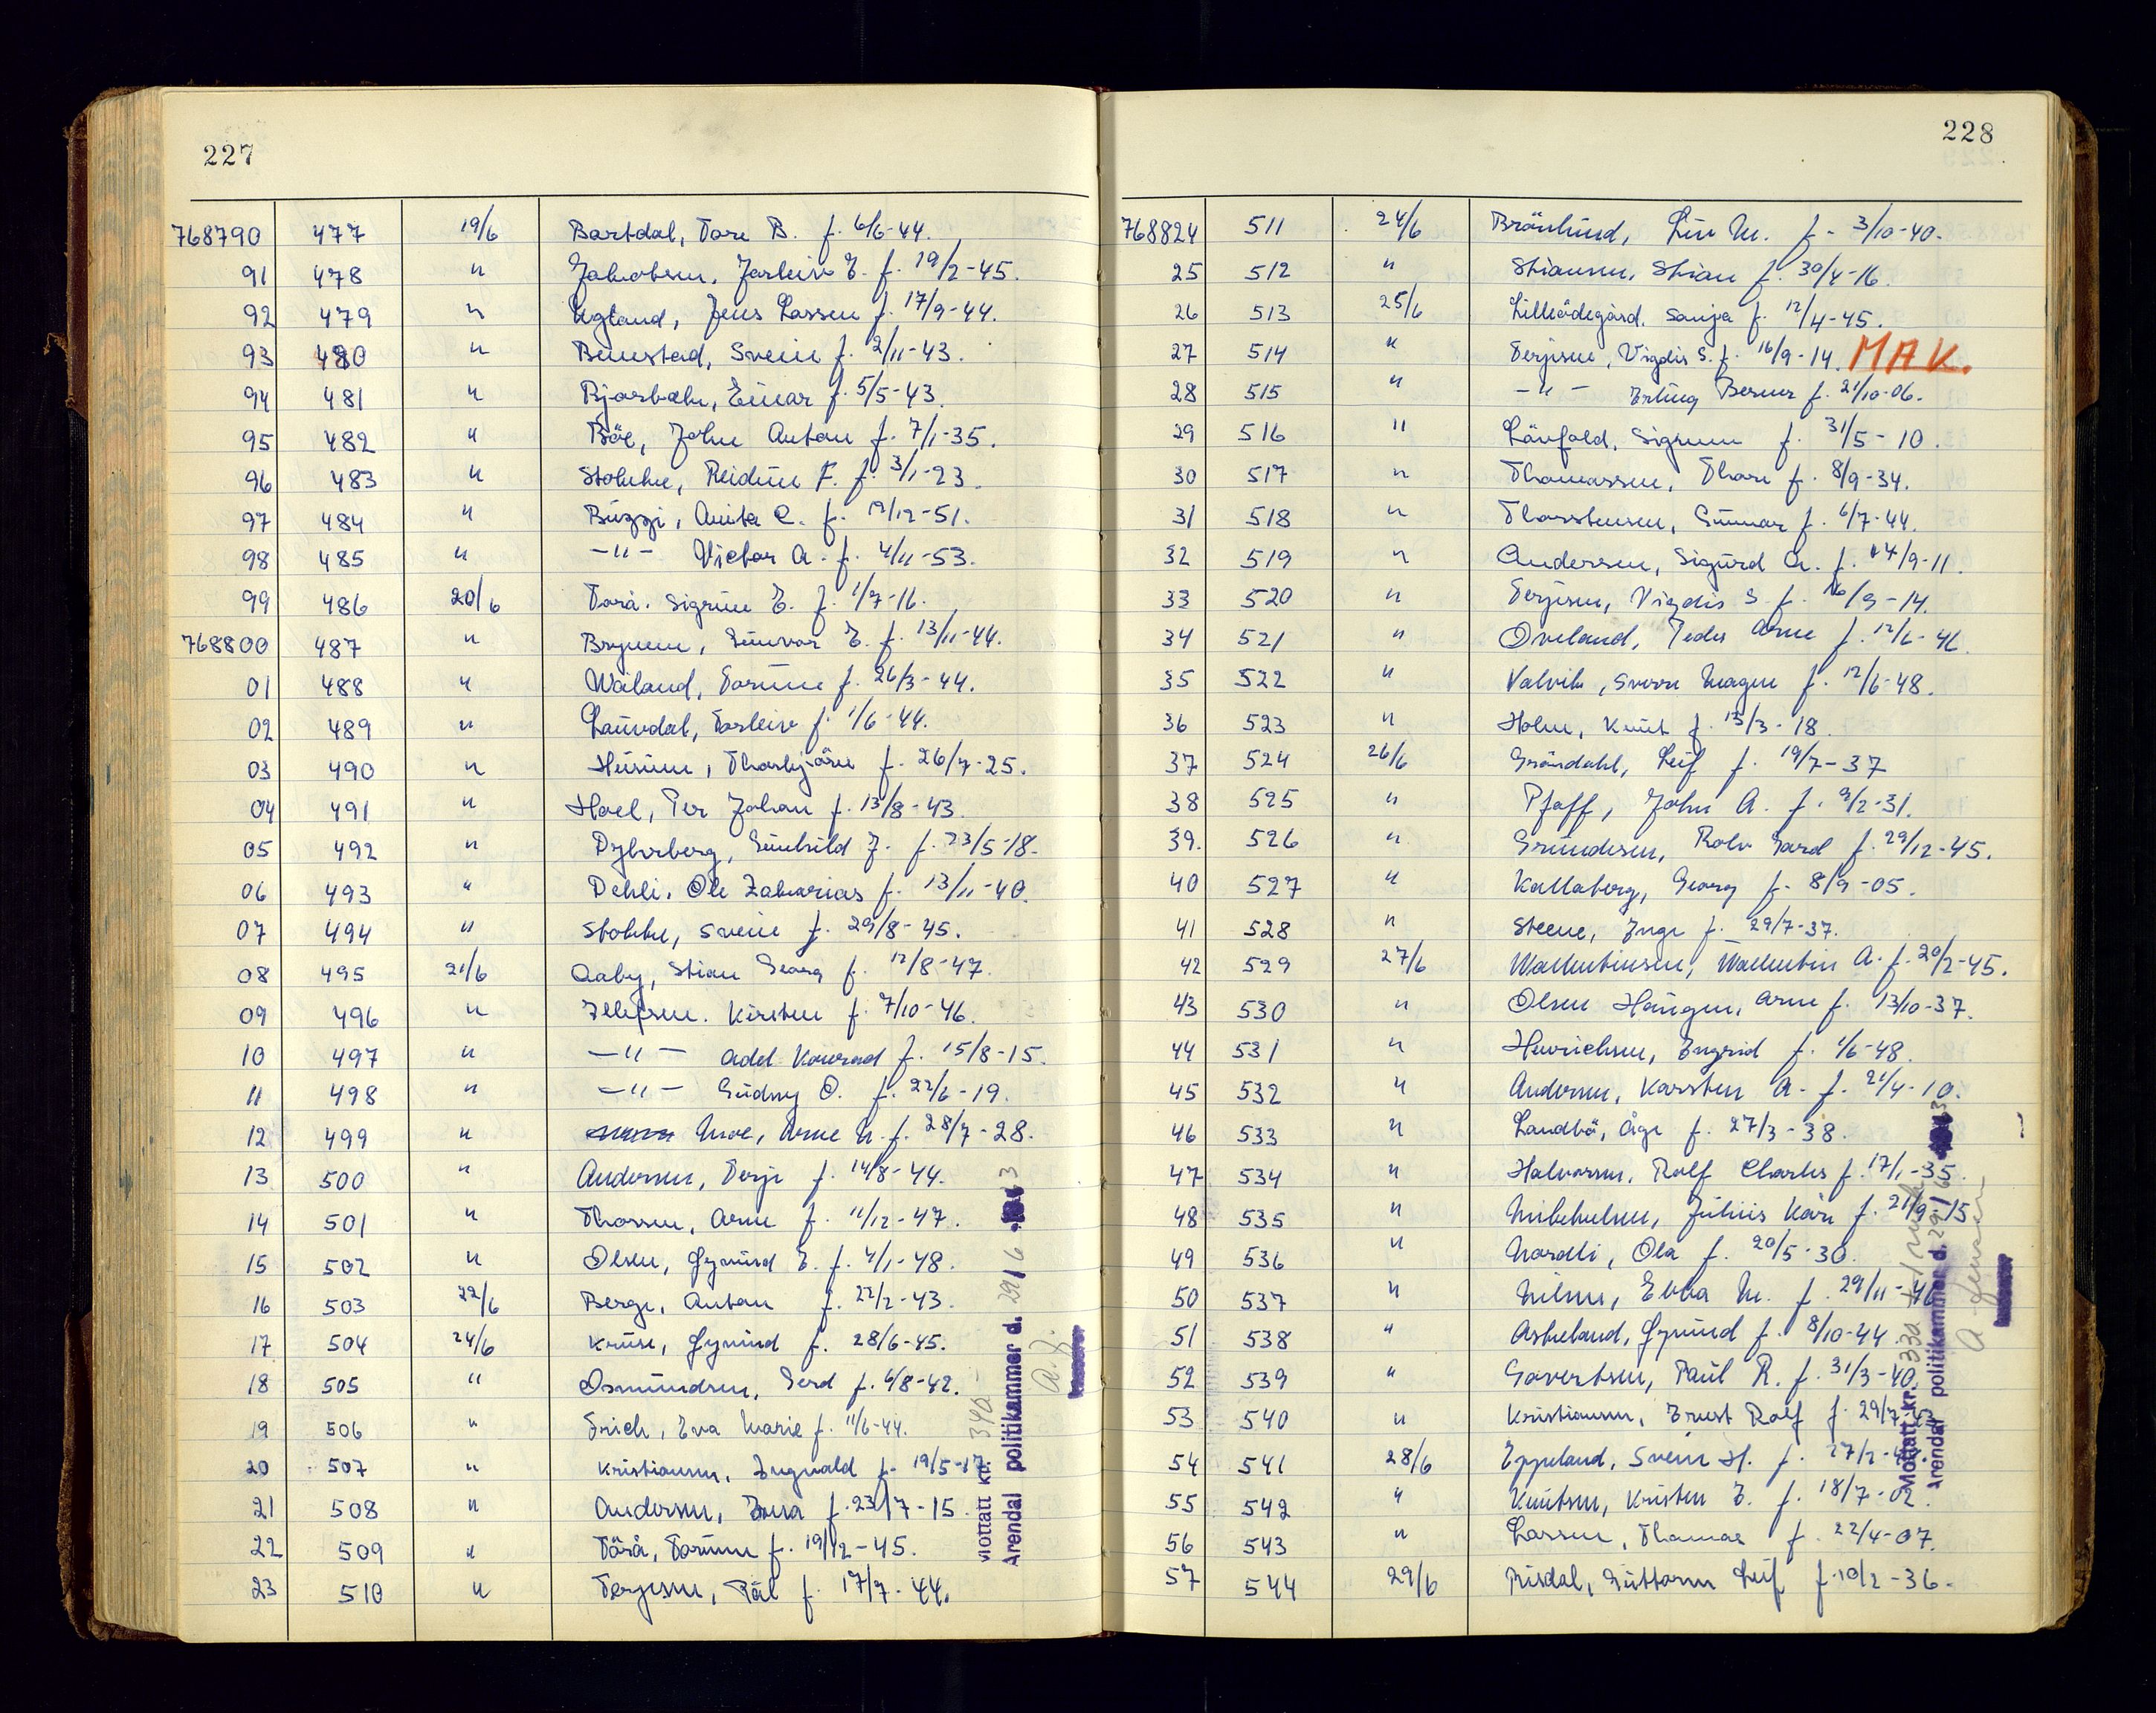 227
768790 477 19/6 Bartdal, Tore B. f. 6/6-44.
91 478 " Jakobsen, Jarleiv E. f. 19/2-45.
92 479 " Ugland, Jens Lassen f. 17/9-44.
93 480 " Benestad, Svein f. 2/11-43.
94 481 " Bjorbæk, Einar f. 5/5-43.
95 482 " Böe, John Anton f. 7/1-35.
96 483 " Stokke, Reidun F. f. 3/1-23.
97 484 " Buzzi, Anita C. f. 19/12-51.
98 485 " -"- Victor A. f. 4/11-53.
99 486 20/6 Torå. Sigrun E. f. 1/7-16.
768800 487 " Brynem, Gunvor E. f. 13/11-44.
01 488 " Wåland, Torunn f. 26/3-44.
02 489 " Laundal, Torleiv f. 1/6-44.
03 490 " Thorbjörn f. 26/7-25.
04 491 " Hoel, Per Johan f. 13/8-43.
05 492 " Dybvberg, Gunhild J. f. 23/5-18.
06 493 " Dehli, Ole Zakarias f. 13/11-40.
07 494 " Stokke, Svein f. 29/8-45.
08 495 21/6 Aaby, Stian Georg f. 12/8-47.
09 496 " Ellefsen. Kirsten f. 7/10-46.
10 497 " -"- Adel. Konrad f. 15/8-15.
11 498 " -"- Gudny O. f. 22/6-19.
12 499 " Moe, Arne N. f. 28/7-28.
13 500 " Andersen, Terje f. 14/8-44.
14 501 " Thorsen, Arne f. 11/12-47.
15 502 " Olsen, Gyurd E. f. 4/1-48.
16 503 22/6 Berge, Anton f. 22/2-43.
17 504 24/6 Kruse, Öyvind f. 28/6-45.
18 505 " Osmundsen, Gerd f. 6/8-42.
19 506 " Erich, Eva Marie f. 11/6-44.
20 507 " Kristiansen, Ingvald f. 19/5-17.
21 508 " Andersen, Inga f. 23/7-15.
22 509 " Törå, Torunn f. 19/12-45.
23 510 " Terjesen, Pål f. 17/7-44.
Mottatt kr. 340 -
Arendal politikammer d. 29/6 3
A. J.
228
768824 511 24/6 Brönlund, Liv M. f. 3/10-40.
25 512 " Stiansen, Stian f. 30/4-16.
26 513 25/6 Lilleödegård. Sonja f. 12/4-45.
27 514 " Terjesen, Vigdis S. f. 16/9-14. MAK.
28 515 " -"- Erling Berner f. 21/10-06.
29 516 " Lönfald, Sigrunn f. 31/5-10.
30 517 " Thomassen, Thore f. 8/9-34.
31 518 " Thorstensen, Gunnar f. 6/7-44.
32 519 " Andersen, Sigurd A. f. 14/9-11.
33 520 " Terjesen, Vigdis S. f. 16/9-14.
34 521 " Oveland, Peder Arne f. 12/6-46.
35 522 " Valvik, Sverre Magne f. 12/6-48.
36 523 " Holm, Knut f. 13/3-18.
37 524 26/6 Gröndahl, Leif f. 19/7-37
38 525 " Pfaff, John A. f. 9/2-31.
39. 526 " Gundersen, Rolv Gard f. 29/12-45.
40 527 " Kallaberg, Georg f. 8/9-05.
41 528 " Steene, Inge f. 29/7-37.
42 529 27/6 Wallentinsen, Wallentin A. f. 20/2-45.
43 530 " Olsen Haugen, Arne f. 13/10-37.
44 531 " Henrichsen, Ingrid f. 1/6-48.
45 532 " Andersen, Karsten A. f. 21/4-10.
46 533 " Landbö, Åge f. 27/3-38.
47 534 " Halvorsen, Rolf Charles f. 17/1-35.
48 535 " Mikkelsen, Julius Kåre f. 21/9-15.
49 536 " Nordli, Ola f. 20/5-30.
50 537 " Nilsen, Ebba M. f. 29/11-46
51 538 " Askeland, Öyvind f. 8/10-44
52 539 " Govertsen, Paul R. f. 31/3-40.
53 540 " Kristiansen, Ernst Rolf f. 29/7-
54 541 28/6 Eppeland, Svein H. f. 27/2-
55 542 " Knutsen, Kristen E. f. 18/7-02.
56 543 " Larsen, Thomas f. 22/4-07.
57 544 29/6 Risdal, Guttorm Leif f. 10/2-36.
Mottatt kr. 330
Arendal politikammer d. 29/6 3
A Jensen